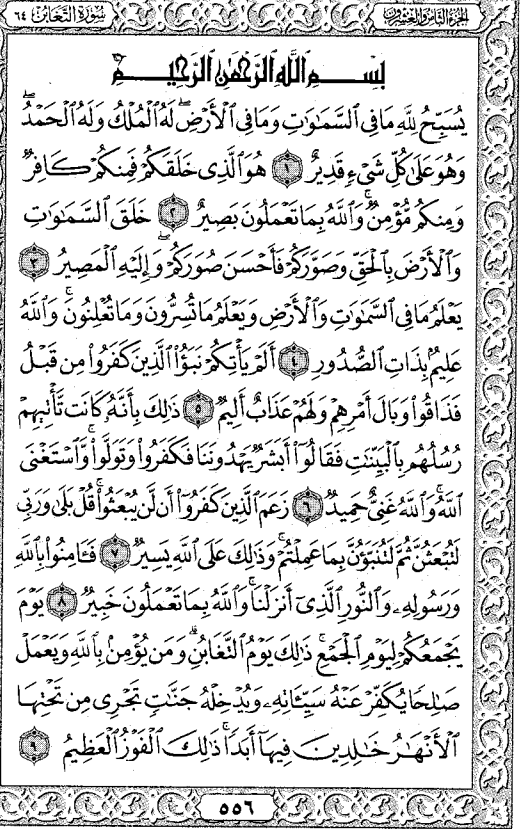 سورة التغابن ٦٤
الجزء الثامن والعشرون
بِسْمِ اللَّهِ الرَّحْمَٰنِ الرَّحِيمِ
يُسَبِّحُ لِلَّهِ مَا فِي السَّمَاوَاتِ وَمَا فِي الْأَرْضِ ۖ لَهُ الْمُلْكُ وَلَهُ الْحَمْدُ ۖ
وَهُوَ عَلَىٰ كُلِّ شَيْءٍ قَدِيرٌ ١ هُوَ الَّذِي خَلَقَكُمْ فَمِنكُمْ كَافِرٌ
وَمِنكُم مُّؤْمِنٌ ۚ وَاللَّهُ بِمَا تَعْمَلُونَ بَصِيرٌ ٢ خَلَقَ السَّمَاوَاتِ
وَالْأَرْضَ بِالْحَقِّ وَصَوَّرَكُمْ فَأَحْسَنَ صُوَرَكُمْ ۖ وَإِلَيْهِ الْمَصِيرُ ٣
يَعْلَمُ مَا فِي السَّمَاوَاتِ وَالْأَرْضِ وَيَعْلَمُ مَا تُسِرُّونَ وَمَا تُعْلِنُونَ ۚ وَاللَّهُ
عَلِيمٌ بِذَاتِ الصُّدُورِ ٤ أَلَمْ يَأْتِكُمْ نَبَؤُا الَّذِينَ كَفَرُوا مِن قَبْلُ
فَذَاقُوا وَبَالَ أَمْرِهِمْ وَلَهُمْ عَذَابٌ أَلِيمٌ ٥ ذَٰلِكَ بِأَنَّهُ كَانَت تَّأْتِيهِمْ
رُسُلُهُم بِالْبَيِّنَاتِ فَقَالُوا أَبَشَرٌ يَهْدُونَنَا فَكَفَرُوا وَتَوَلَّوا ۚ وَّاسْتَغْنَى
اللَّهُ ۚ وَاللَّهُ غَنِيٌّ حَمِيدٌ ٦ زَعَمَ الَّذِينَ كَفَرُوا أَن لَّن يُبْعَثُوا ۚ قُلْ بَلَىٰ وَرَبِّي
لَتُبْعَثُنَّ ثُمَّ لَتُنَبَّؤُنَّ بِمَا عَمِلْتُمْ ۚ وَذَٰلِكَ عَلَى اللَّهِ يَسِيرٌ ٧ فَآمِنُوا بِاللَّهِ
وَرَسُولِهِ وَالنُّورِ الَّذِي أَنزَلْنَا ۚ وَاللَّهُ بِمَا تَعْمَلُونَ خَبِيرٌ ٨ يَوْمَ
يَجْمَعُكُمْ لِيَوْمِ الْجَمْعِ ۖ ذَٰلِكَ يَوْمُ التَّغَابُنِ ۗ وَمَن يُؤْمِن بِاللَّهِ وَيَعْمَلْ
صَالِحًا يُكَفِّرْ عَنْهُ سَيِّئَاتِهِ وَيُدْخِلْهُ جَنَّاتٍ تَجْرِي مِن تَحْتِهَا
الْأَنْهَارُ خَالِدِينَ فِيهَا أَبَدًا ۚ ذَٰلِكَ الْفَوْزُ الْعَظِيمُ ٩
٥٥٦